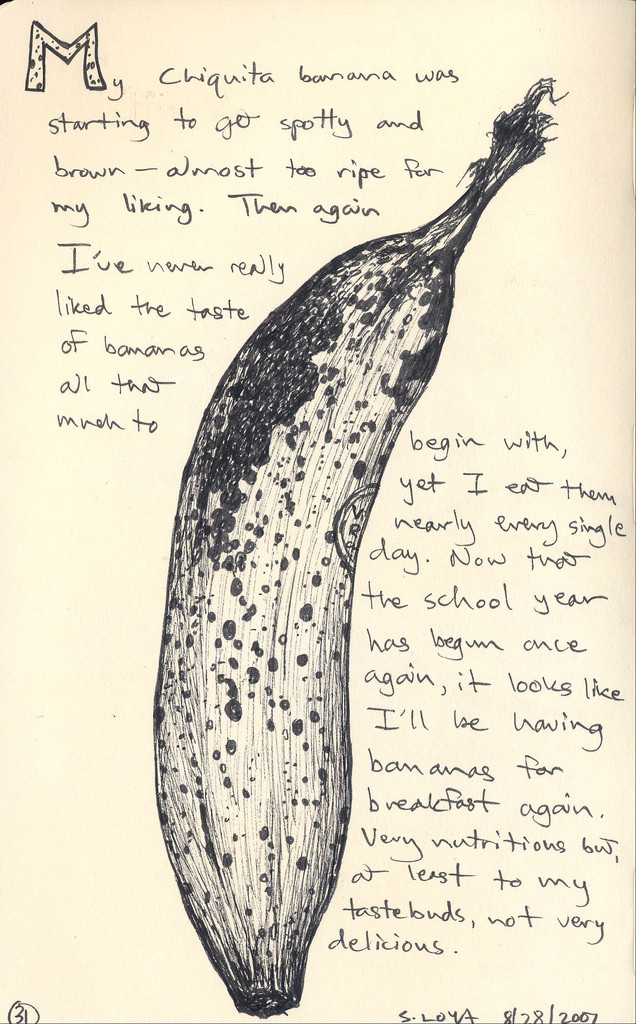 My Chiquita banana was
starting to get spotty and
brown — almost too ripe for
my liking. Then again
I've never really
liked the taste
of bananas
all that
much to
begin with,
yet I eat them
nearly every single
day. Now that
the school year
has begun once
again, it looks like
I'll be having
bananas for
breakfast again.
Very nutritious but,
at least to my
tastebuds, not very
delicious.
31
S. LOYA 8/28/2007